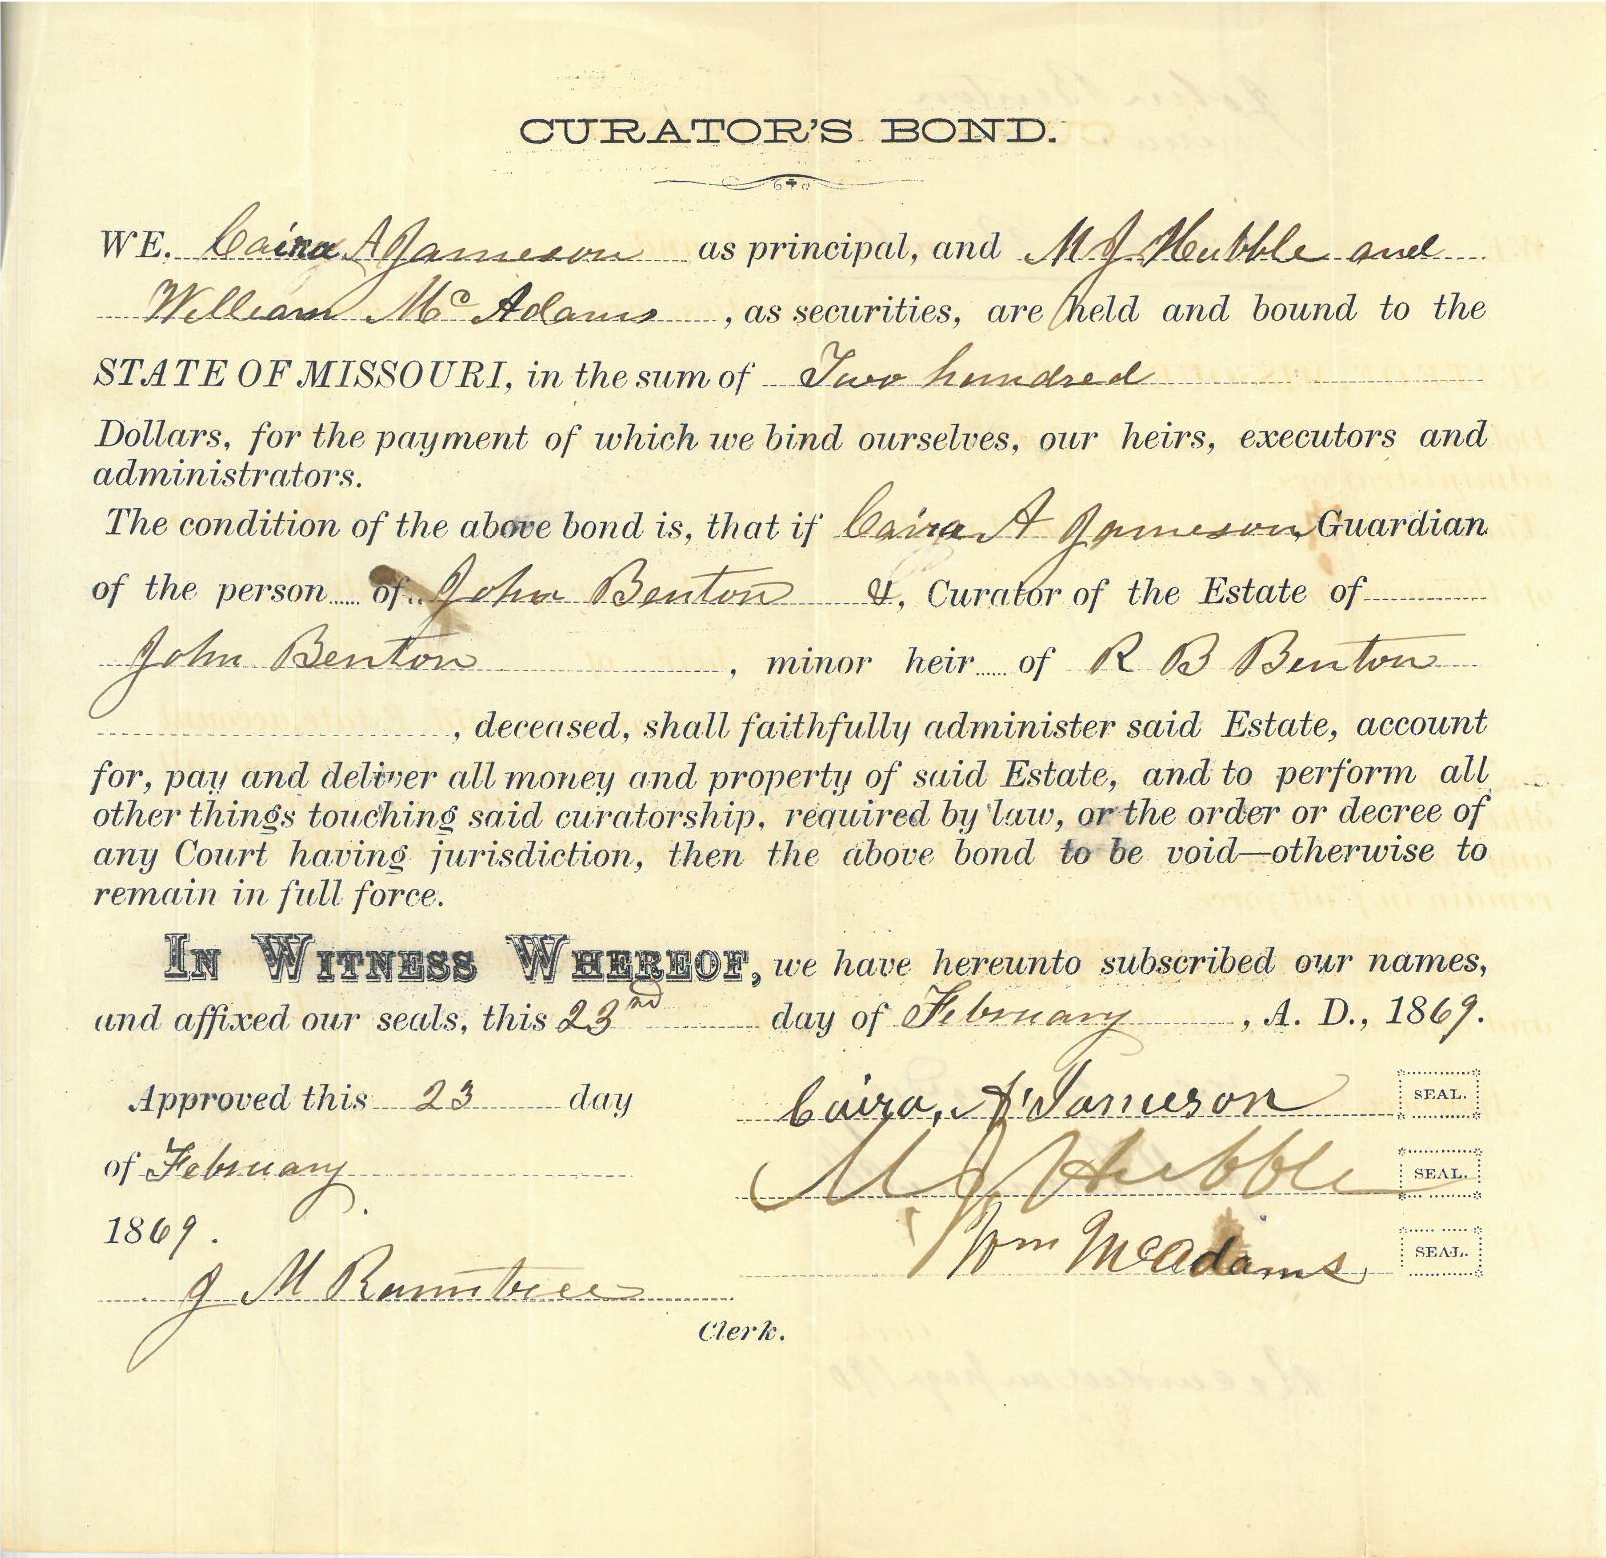 CURATOR'S BOND.
WE. Caira A Jameson as principal, and M J Hubble and
William Mc Adams, as securities, are held and bound to the
STATE OF MISSOURI, in the sum of Two hundred
Dollars, for the payment of which we bind ourselves, our heirs, executors and
administrators.
The condition of the above bond is, that if Caira A Jameson, Guardian
of the person of John Benton &, Curator of the Estate of
John Benton, minor heir of R B Benton
, deceased, shall faithfully administer said Estate, account
for, pay and deliver all money and property of said Estate, and to perform all
other things touching said curatorship, required by law, or the order or decree of
any Court having jurisdiction, then the above bond to be void—otherwise to
remain in full force.
IN WITNESS WHEREOF, we have hereunto subscribed our names,
and affixed our seals, this 23nd day of February, A. D., 1869.
Approved this 23 day
of February
1869.
J M Rountree
Clerk.
Caira, A, Jameson SEAL.
M J Hubble SEAL.
Wm McAdams SEAL.